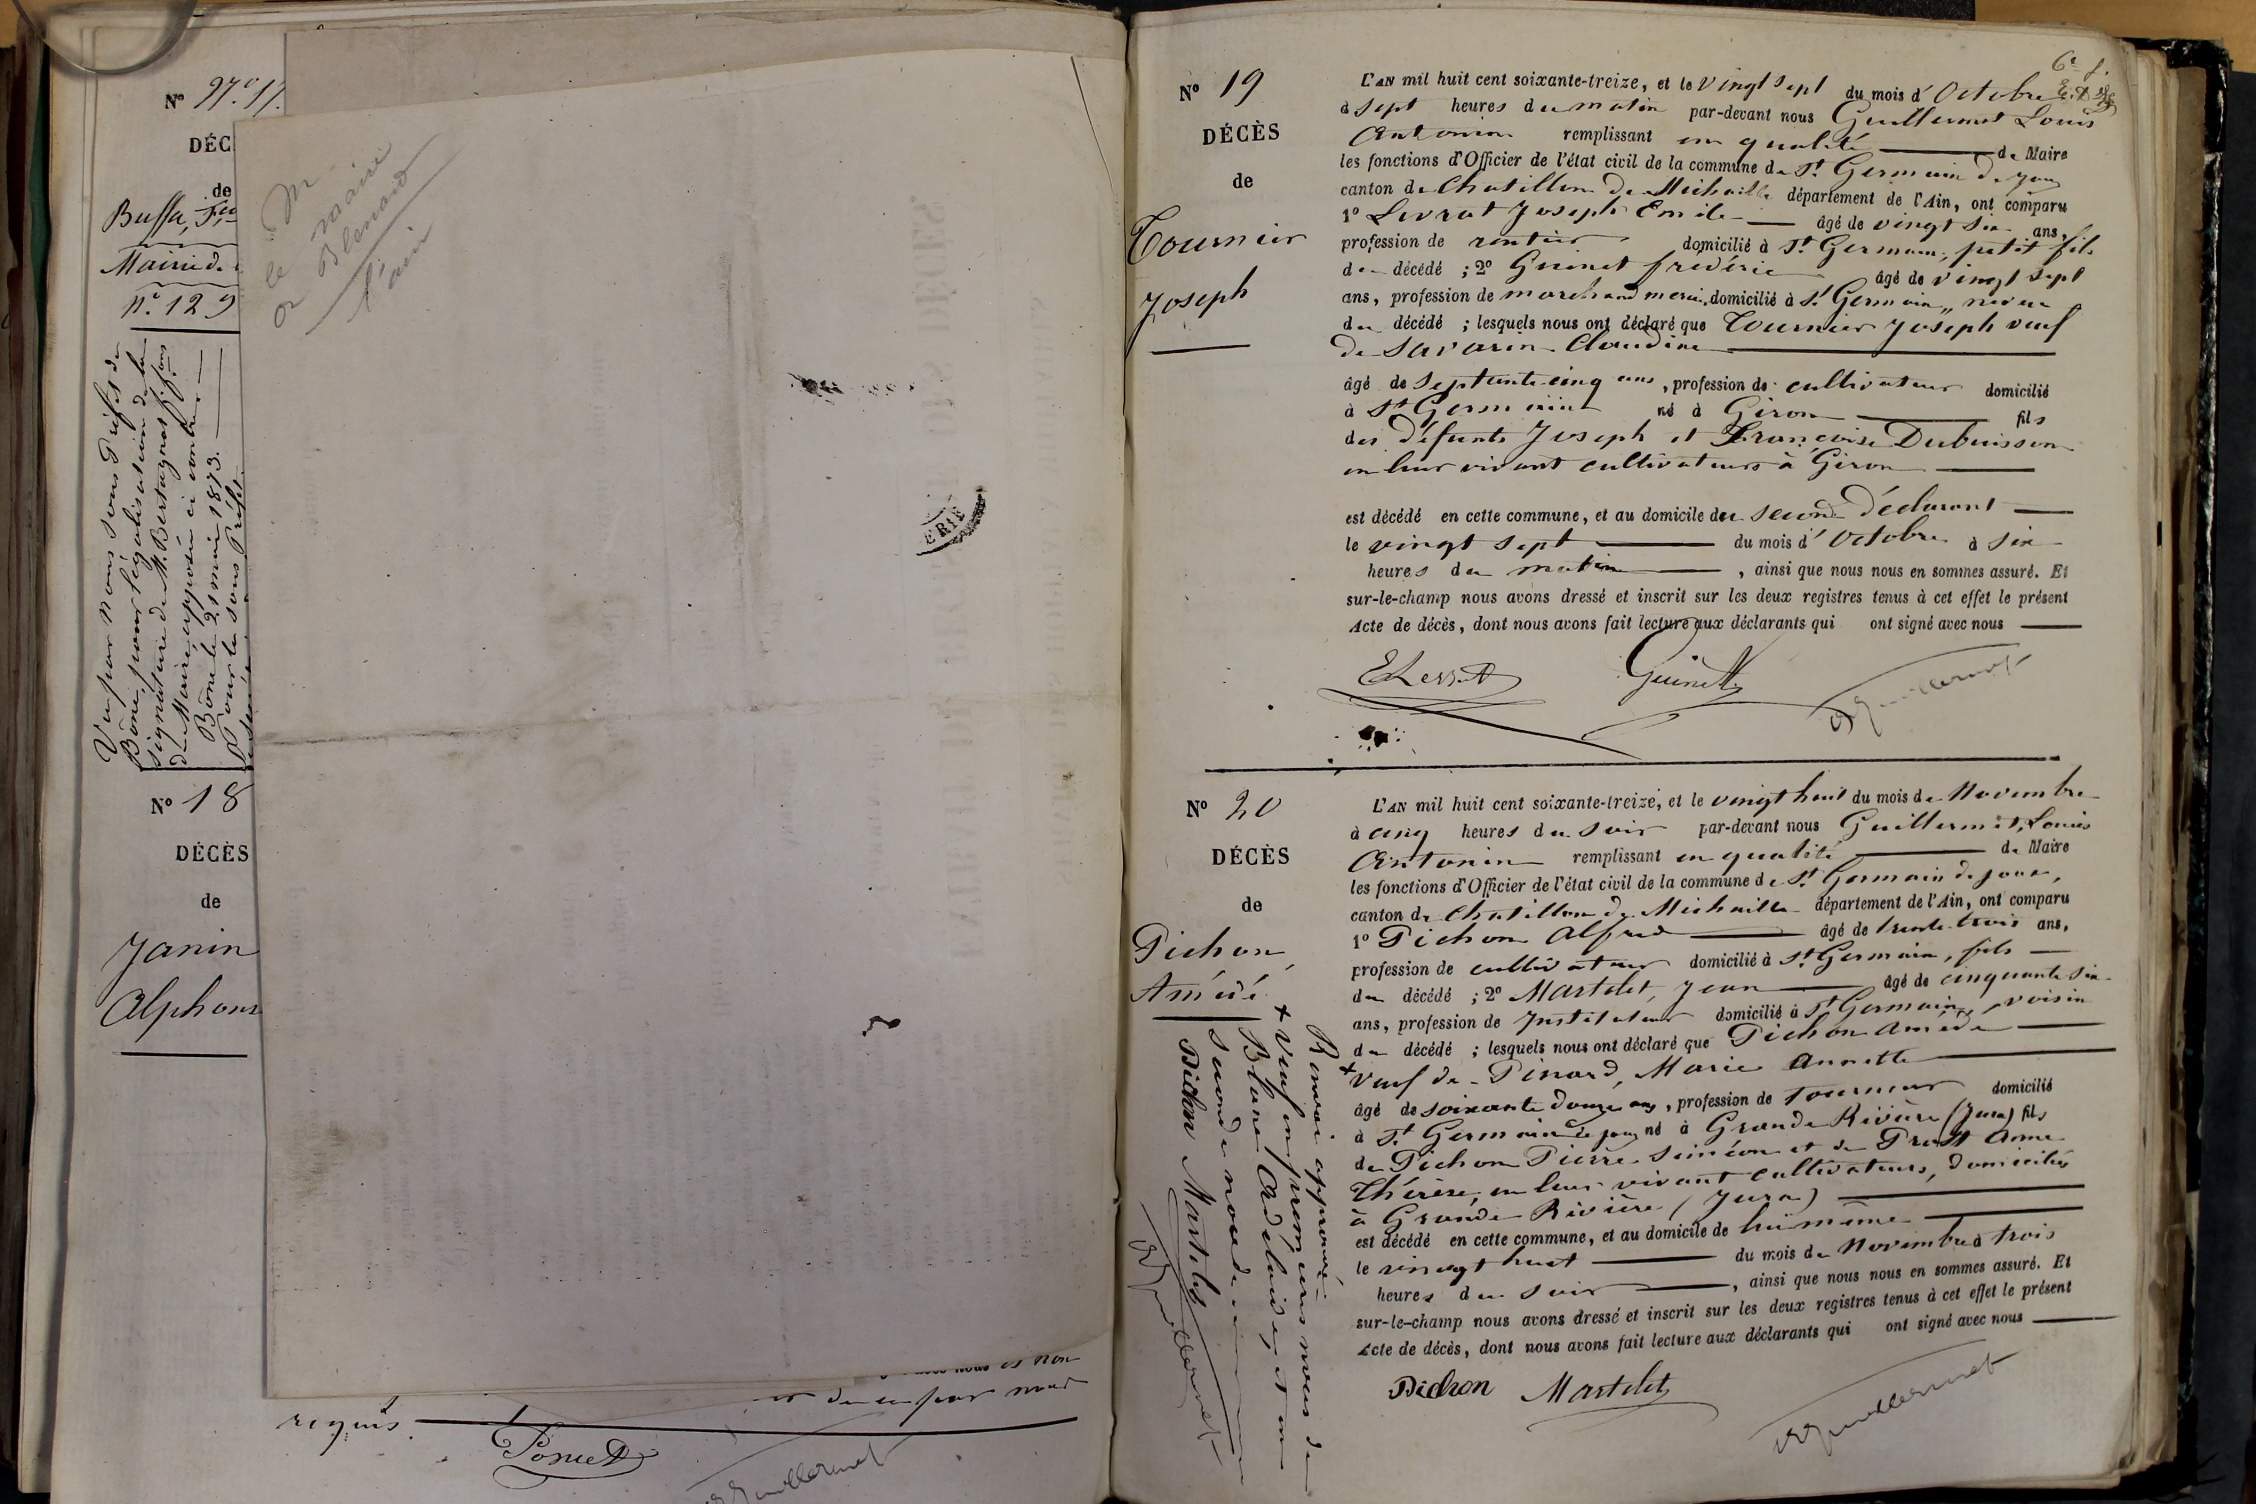 N° 97.° 17.
DÉC
de
Buffa,
Mairie de
n.° 129
Vu par nous sous Préfet de
Bône, pour légalisation de la
signature de M. Bertagnat
de Maire, apposée ci contre
Bône le 21 mai 1873.
Pour le sous Préfet
N° 18
DÉCÈS
de
Janin
Alphons
M
le maire
Blenod
l'ain
ERIE
requis.
Poncet
Guillermet
N° 19
DÉCÈS
de
Tournier
Joseph
L'AN mil huit cent soixante-treize, et le vingt sept du mois d' Octobre
à sept heures du matin par-devant nous Guillermet Louis
Antonin remplissant en qualité de Maire
les fonctions d'Officier de l'état civil de la commune de St Germain de joux
canton de Chatillon de Michaille département de l'Ain, ont comparu
1° Levrat Joseph Emile âgé de vingt six ans,
profession de rentier domicilié à St Germain, petit fils
du décédé ; 2° Guinet frédéric âgé de vingt sept
ans, profession de marchand mercier, domicilié à St Germain, neveu
du décédé ; lesquels nous ont déclaré que Tournier Joseph veuf
de Savarin Claudine
âgé de septante cinq ans, profession de cultivateur domicilié
à St Germain né à Giron fils
des défunts Joseph et Françoise Dubuisson
en leur vivant cultivateurs à Giron
est décédé en cette commune, et au domicile du second déclarant
le vingt sept du mois d' Octobre à six
heures du matin, ainsi que nous nous en sommes assuré. Et
sur-le-champ nous avons dressé et inscrit sur les deux registres tenus à cet effet le présent
Acte de décès, dont nous avons fait lecture aux déclarants qui ont signé avec nous
Guinet
Guillermet
N° 20
DÉCÈS
de
Pichon
Amédé
L'AN mil huit cent soixante-treize, et le vingt huit du mois de Novembre
à cinq heures du soir par-devant nous Guillermet, Louis
Antonin remplissant en qualité de Maire
les fonctions d'Officier de l'état civil de la commune de St Germain de joux,
canton de Chatillon de Michaille département de l'Ain, ont comparu
1° Pichon Alfred âgé de trente trois ans,
profession de cultivateur domicilié à St Germain, fils
du décédé ; 2° Martelet, Jean âgé de cinquante six
ans, profession de Instituteur domicilié à St Germain, voisin
du décédé ; lesquels nous ont déclaré que Pichon Amédé
+ veuf de Pinard, Marie Annette
âgé de soixante douze ans, profession de Tourneur domicilié
à St Germain de joux né à Grande Rivière (Jura) fils
de Pichon Pierre Siméon et de Prost Anne
Thérèse, en leur vivant cultivateurs, domiciliés
à Grande Rivière (Jura)
est décédé en cette commune, et au domicile de lui même
le vingt huit du mois de Novembre à trois
heures du soir, ainsi que nous nous en sommes assuré. Et
sur-le-champ nous avons dressé et inscrit sur les deux registres tenus à cet effet le présent
Acte de décès, dont nous avons fait lecture aux déclarants qui ont signé avec nous
Pichon Martelet
Guillermet
Renvoi approuvé
+ veuf en premières noces de
Blanc Adélaïde, et en
seconde noce de
Pichon Martelet
Guillermet